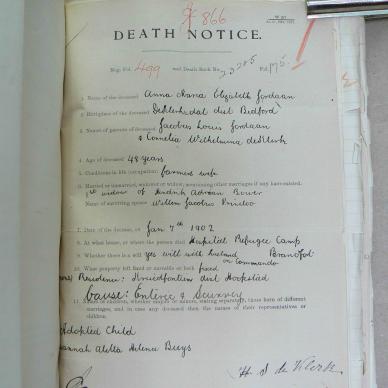 866
DEATH NOTICE.
499 and Death Book No. 23285 Fol. 175.
1. Name of the deceased Anna Maria Elizabeth Jordaan
2. Birthplace of the deceased deKlerksdal dist Bedford
3. Names of parents of deceased Jacobus Louis Jordaan
& Cornelia Wilhelmina deKlerk
4. Age of deceased 48 years
5. Conditions in life (occupation) farmers wife
6. Married or unmarried, widower or widow, mentioning other marriages if any have existed.
1st widow of Hendrik Adriaan Bouwer
Name of surviving spouse Willem Jacobus Prinsloo
7. Date of the decease, on Jan 7th 1902
8. At what house, or where the person died Hospital Refugee Camp
Brandfort
9. Whether there is a will yes will with husband
on Commando
10. What property left fixed or movable or both fixed
Residence: Kruidfontein dist Hoopstad
Cause: Enteric &
11. Names of children, whether major or minors, stating separately, those born of different
marriages, and in case any deceased then the names of their representatives or
children.
Adopted Child
Aletta Helena Buys
H. J. de Klerk